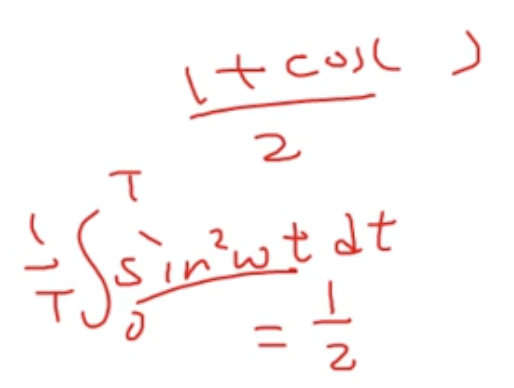 (1 + cos( ))/2
1/T ∫₀ᵀ sin²wt dt
= 1/2